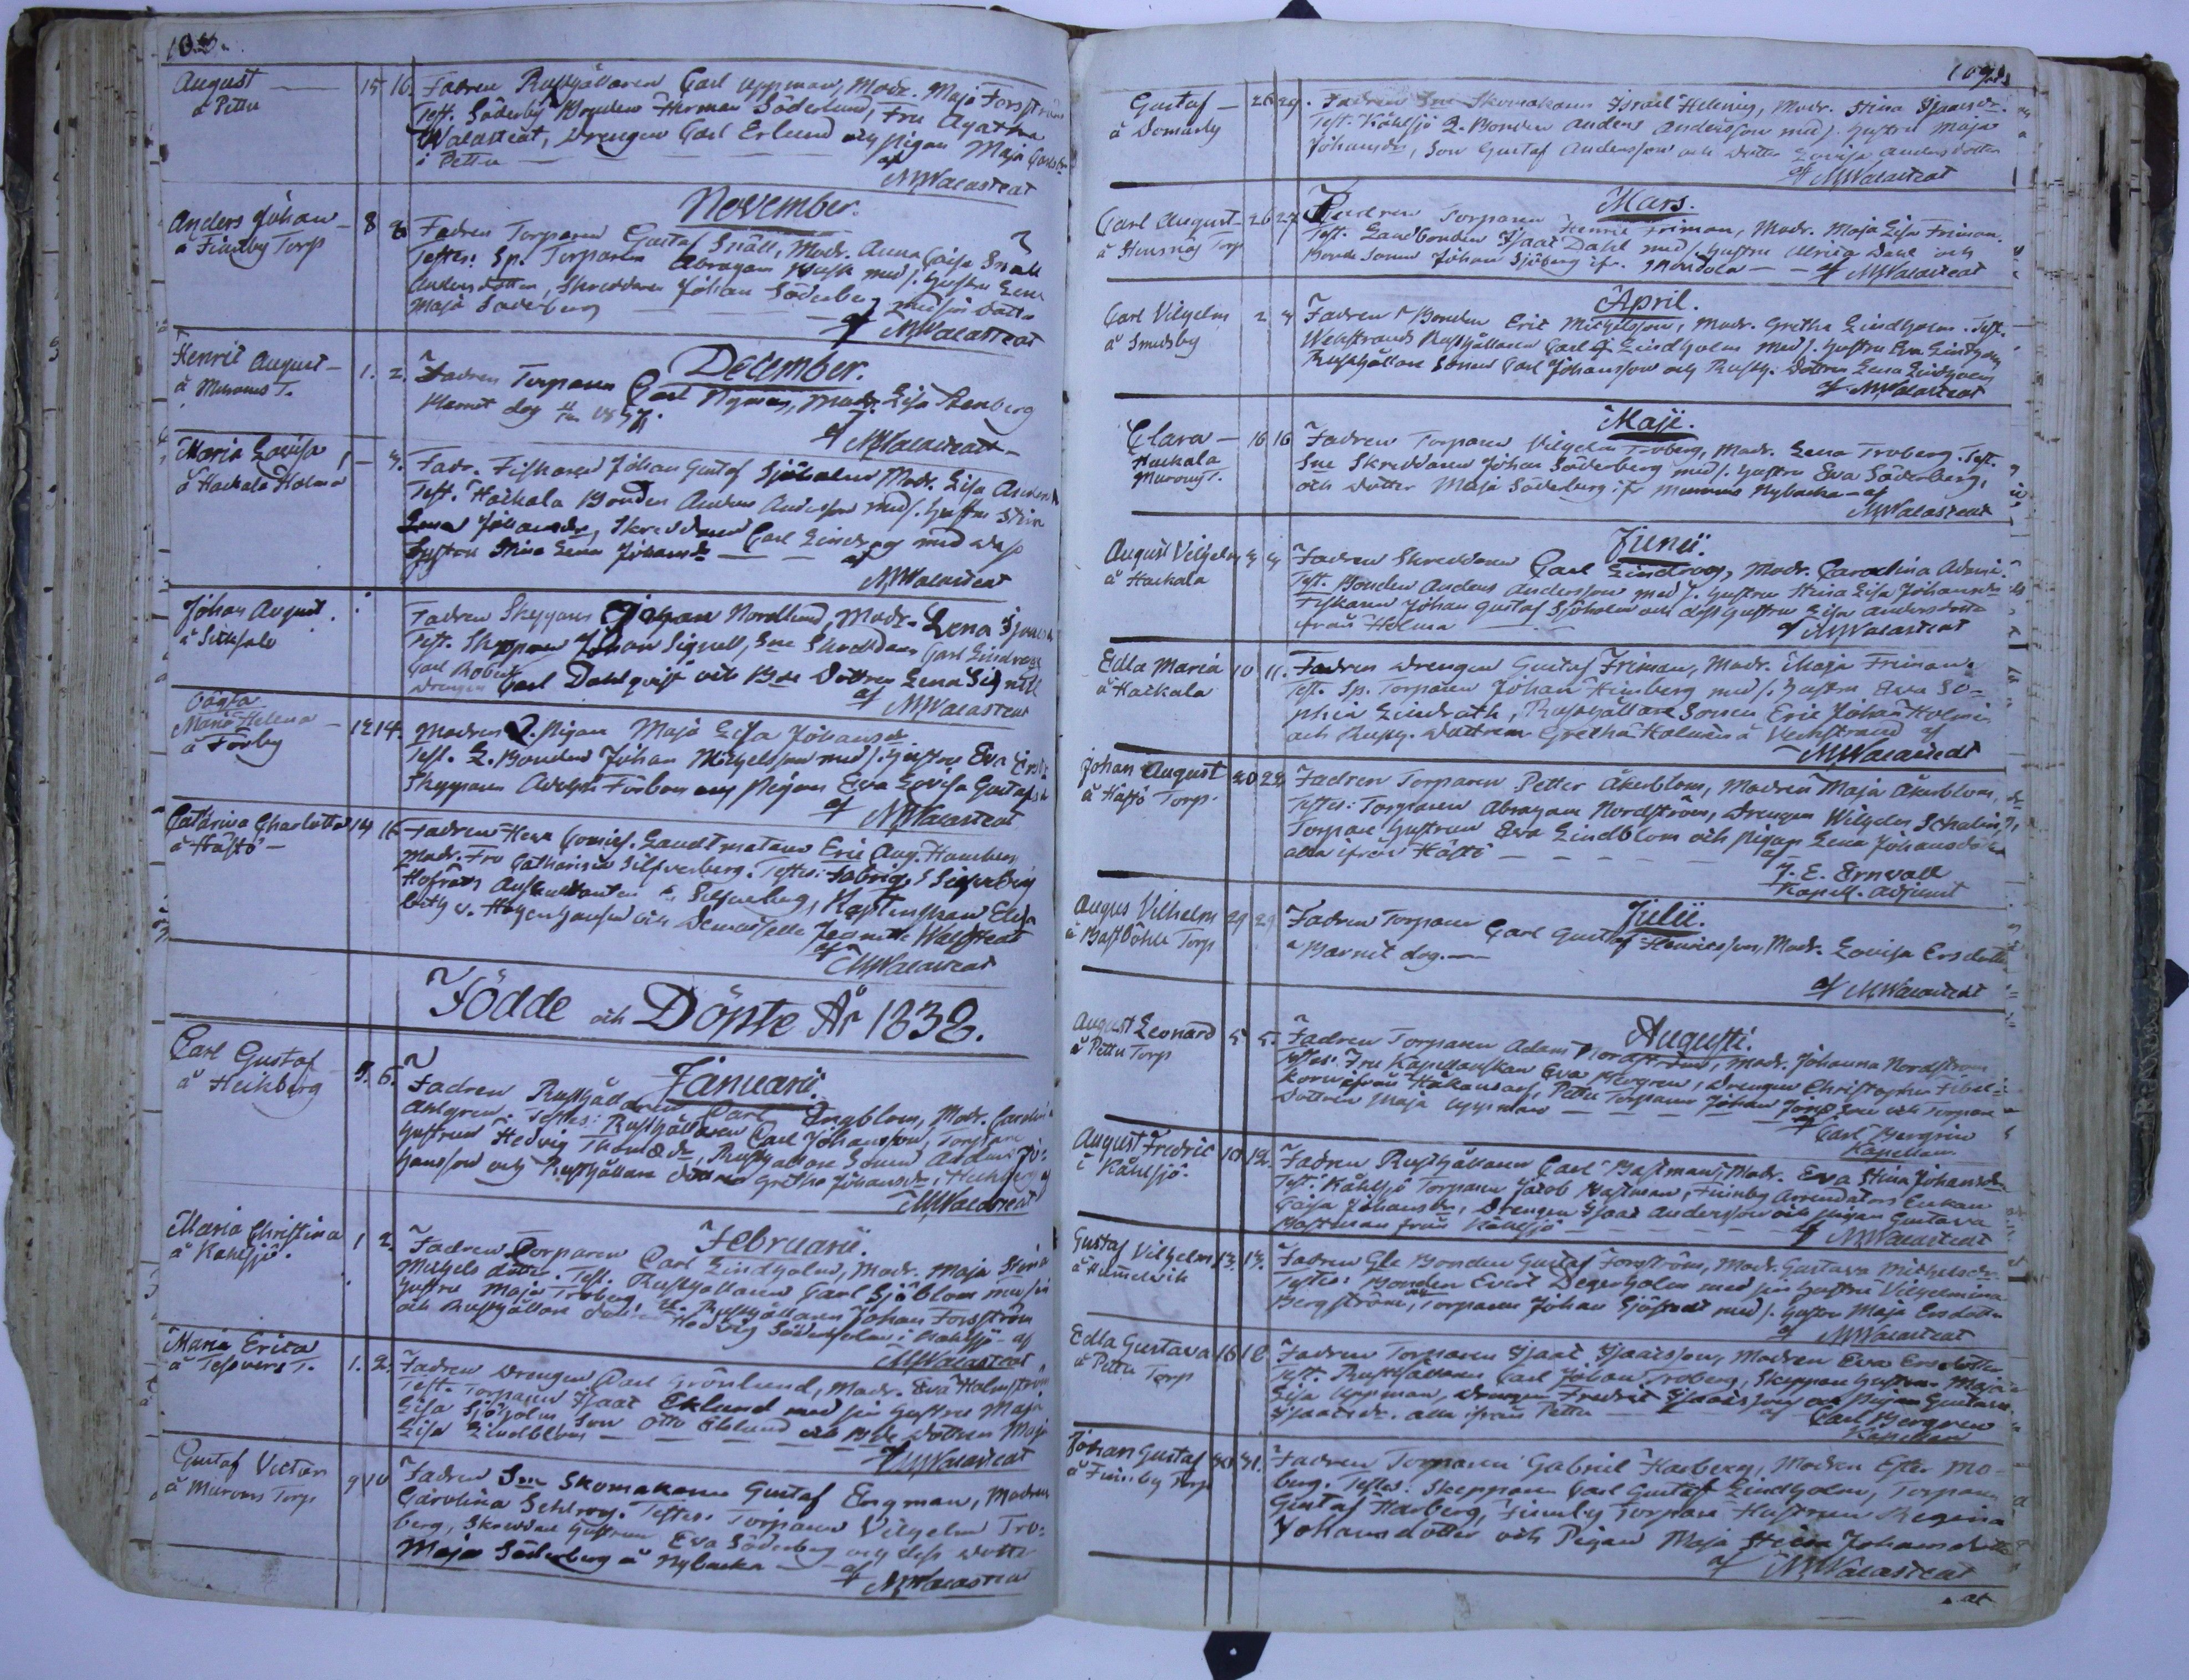 August — 15 16. Fadren Rusthållaren Carl Uppman, Modr. Maja Forsström
å Pettu Test. Söderby Bonden Herman Söderlund, Fru Agatha
Walasteat, Drengen Carl Erlund och Pigan Maja
i Pettu — af
MWalasteat
November.
Anders Johan — 8 8 Fadren Torparen Gustaf Snäll, Modr. Anna Caisa Snäll
å Finnby Torp Testes: Sp. Torparen Abraham med s. hustru Lena
Andersdotter, Skreddaren Johan Söderberg med sin dotter
Maja Söderberg — af MWalasteat
December.
Henric August — 1. 2. Fadren Torparen Carl Nyman, Modr. Lisa Stenberg
å Murmus T. Barnet dog
af MWalasteat
Maria Lovisa 1 — 3. Fadr. Fiskaren Johan Gustaf Sjöholm Modr. Lisa Anders
å Haikala Holma Test. Haikala Bonden Anders Andersson med s. hustru Stina
Lena Johansdr, Skreddaren Carl Lindroos med dess
hustru Stina Lena Johansdr — af
MWalasteat
Johan August Fadren Skepparen Johan Nordlund, Modr. Lena
å Test. Skepparen Johan Signell, Sne Skreddaren Carl Lindroos
Drengen Carl Dahlqvist och Bde Dottren Lena Signell
af MWalasteat
Oägta
Maria Helena — 12 14. Modren Pigan Maja Lisa Johansdr
å Förby Test. L. Bonden Johan Michelsson med s. hustru Eva
Skepparen Adolph Förbom och Pigan Eva Lovisa Gustafs
af MWalasteat
Catharina Charlotta 14 16 Fadren Herr Comiss. Landtmätaren Eric Aug.
å Hästö — Modr. Fru Catharina Silfverberg. Testes: Silfverberg
Hofrätts Auskultanten Silfverberg, Kaptenskan
och Demoiselle Jeanette Walasteat
af MWalasteat
Födde och Döpte År 1838.
Januarii.
Carl Gustaf 5. 6. Fadren Rusthållaren Carl Engblom, Modr. Carolina
å Heikberg Ahlgren. Testes: Rusthållaren Carl Johansson, Torpare
hustrun Hedvig Thomædr, Rusthållare Sonen Anders Jo-
hansson och Rusthållare dottren Gretha Johansdr i Heikberg af
MWalasteat
Februarii.
Maria Christina 1 2. Fadren Torparen Carl Lindholm, Modr. Maja Stina
å Kåhlsjö. Michels dotter. Test. Rusthållaren Carl Sjöblom med sin
hustru Maja Troberg, Rusthållaren Johan Forsström
och Rusthållare Hedvig i Kåhlsjö — af
MWalasteat
Maria Erica 1. 2. Fadren Drengen Carl Grönlund, Modr. Eva Holmström
å T. Test. Torparen Isaac Eklund med sin hustru Maja
Lisa Sjöholm, Son Otto Eklund och Bde dottren Maja
Lisa Lindblom — af MWalasteat
Gustaf Victor 9 10 Fadren Sne Skomakaren Gustaf Engman, Modren
å Murmus Torp Carolina Sehlroos. Testes: Torparen Vilhelm Tro-
berg, Skreddare hustrun Eva Söderberg och dess dotter
Maja Söderberg å Nybacka — af MWalasteat
109
Gustaf — 28 29. Fadren Sne Skomakaren Israel Helenius, Modr. Stina Isaacsdr
å Domarby Test. Kåhlsjö L. Bonden Anders Andersson med s. hustru Maja
Johansdr, Son Gustaf Andersson och dotter Lovisa Andersdotter
af MWalasteat
Mars.
Carl August — 26 27. Fadren Torparen Henric Friman, Modr. Maja Lisa Friman.
å Torp Test. Landbonden Isaac Dahl med s. hustru Ulrica Dahl och
Bonde Sonen Johan Sjöberg ifr. — — af MWalasteat
April.
Carl Vilhelm 2 4 Fadren Bonden Eric Michelsson, Modr. Gretha Lindholm. Test.
å Smedsby Wehstrands Rusthållaren Carl G Lindholm med s. hustru Eva Lindholm
Rusthållare Sonen Carl Johansson och Rusth. Dottren Lena Lindholm
af MWalasteat
Maji.
Clara — 16 16 Fadren Torparen Vilhelm Troberg, Modr. Lena Troberg. Test.
Haikala Sne Skreddaren Johan Söderberg med s. hustru Eva Söderberg,
Murmus T. och dotter Maja Söderberg ifr Murmus Nybacka — af
MWalasteat
Junii.
August Vilhelm 3 4 Fadren Skreddaren Carl Lindroos, Modr. Carolina
å Haikala Test. Bonden Anders Andersson med s. hustru Stina Lisa Johansdr
Fiskaren Johan Gustaf Sjöholm och dess hustru Lisa Andersdotter
ifrån Holma — af MWalasteat
Edla Maria 10 11. Fadren Drengen Gustaf Friman, Modr. Maja Friman.
å Haikala Test. Sp. Torparen Johan med s. hustru Eva So-
phia Lindroth, Rusthållare Sonen Eric Johan Holmén
och Rusth. Dottren Gretha Holmén å Wechstrand af
MWalasteat
Johan August 20 22 Fadren Torparen Petter Åkerblom, Modren Maja Åkerblom,
å Hästö Torp. Testes: Torparen Abraham Nordström, Drengen Wilhelm Schalin,
Torpare hustrun Eva Lindblom och Pigan Lena Johansdotter
alla ifrån Hästö — — — af
J. E. Ernvall
Kapell. Adjunct
Julii.
August Vilhelm 29 29 Fadren Torparen Carl Gustaf Henricsson, Modr. Lovisa Ersdotter
å Bastböhle Torp Barnet dog. —
af MWalasteat
Augusti.
August Leonard 5 5. Fadren Torparen Adam Nordström, Modr. Johanna Nordström
å Pettu Torp Testes: Fru Kapellanskan Eva Bergren, Drengen Christopher
ifrån Håkansarf, Pettu Torparen Johan och Torpare
Dottren Maja Uppman — — af
Carl Bergren
Kapellan.
August Fredric 10 12. Fadren Rusthållaren Carl Bastman, Modr. Eva Stina Johansdr
i Kåhlsjö. Test: Kåhlsjö Torparen Jacob Bastman, Finnby Arrendators Enkan
Caisa Johansdr, Drengen Isaac Andersson och Pigan Gustava
Bastman från Kåhlsjö — af MWalasteat
Gustaf Vilhelm 13. 13. Fadren Gle Bonden Gustaf Forsström, Modr. Gustava Michelsdr
å Hummelvik Testes: Bonden Evert Degerholm med sin hustru Vilhelmina
Bergström, Torparen Johan Sjöstedt med s. hustru Maja Ersdotter
af MWalasteat
Edla Gustava 16 18 Fadren Torparen Isaac Isaacsson, Modren Eva Ersdotter
å Pettu Torp Test. Rusthållaren Carl Johan Troberg, Skeppare hustrun Maja
Lisa Uppman, Drengen Fredric Isaacsson och Pigan Gustava
Isaacsdr. alla ifrån Pettu — af Carl Bergren
Kapellan
Johan Gustaf 30 31. Fadren Torparen Gabriel Hasberg, Modren Ester Mo-
å Finnby Torp berg. Testes: Skepparen Carl Gustaf Lindholm, Torparen
Gustaf Hasberg, Finnby Torpare Hustrun Regina
Johansdotter och Pigan Maja Stina Johansdotter
af MWalasteat